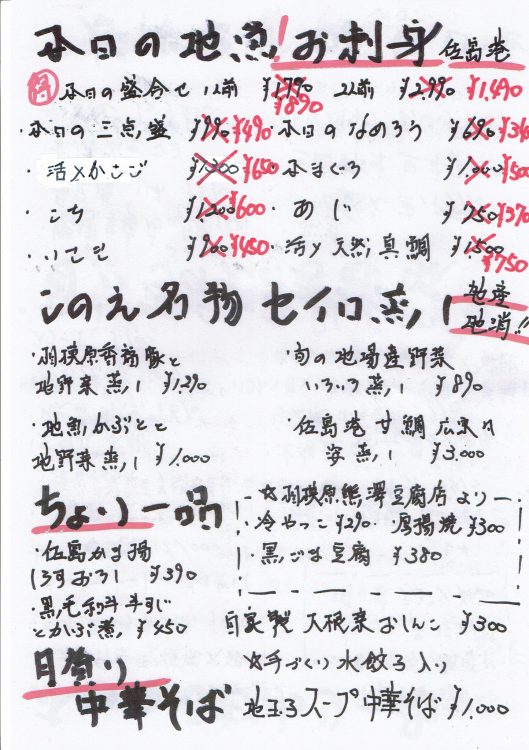 本日の地魚!お刺身 佐島港
本日の盛合せ 1人前 ¥1.790 ¥890 2人前 ¥2.990 ¥1.490
・本日の三点盛 ¥990 ¥490 ・本日のなめろう ¥690 ¥340
・活〆かさご ¥1.300 ¥650 ・本まぐろ ¥1.000 ¥500
・こち ¥1.200 ¥600 ・あじ ¥750 ¥370
・いさき ¥900 ¥450 ・活〆天然真鯛 ¥1.500 ¥750
このえ名物セイロ蒸し 地産地消!!
・相模原香福豚と
地野菜蒸し ¥1.290
・旬の地場産野菜
いろいろ蒸し ¥890
・地魚かぶとと
地野菜蒸し ¥1.000
・佐島港甘鯛広東風
姿蒸し ¥3.000
ちょい一品
・佐島かま揚
しらすおろし ¥390
・黒毛和牛すじ
とかぶ煮 ¥450
☆相模原熊澤豆腐店より
・冷やっこ ¥290 ・厚揚焼 ¥300
・黒ごま豆腐 ¥380
自家製 大根菜おしんこ ¥300
月替り
中華そば
☆手づくり水餃子入り
地玉子スープ中華そば ¥1.000